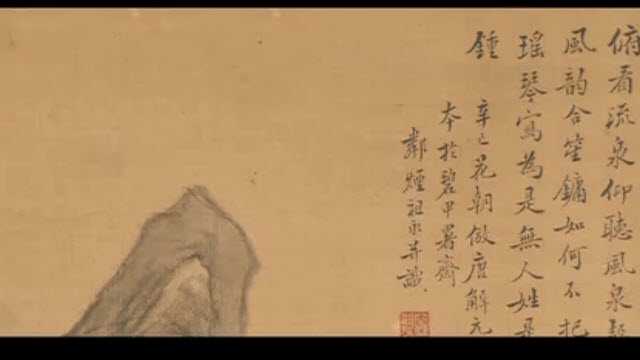 俯看流泉仰聽風泉聲
風韵合笙鏞如何不把
瑶琴寫為是無人姓是
鍾
辛巳花朝倣唐解元
本於碧甲署齋
鄰煙祖永并識